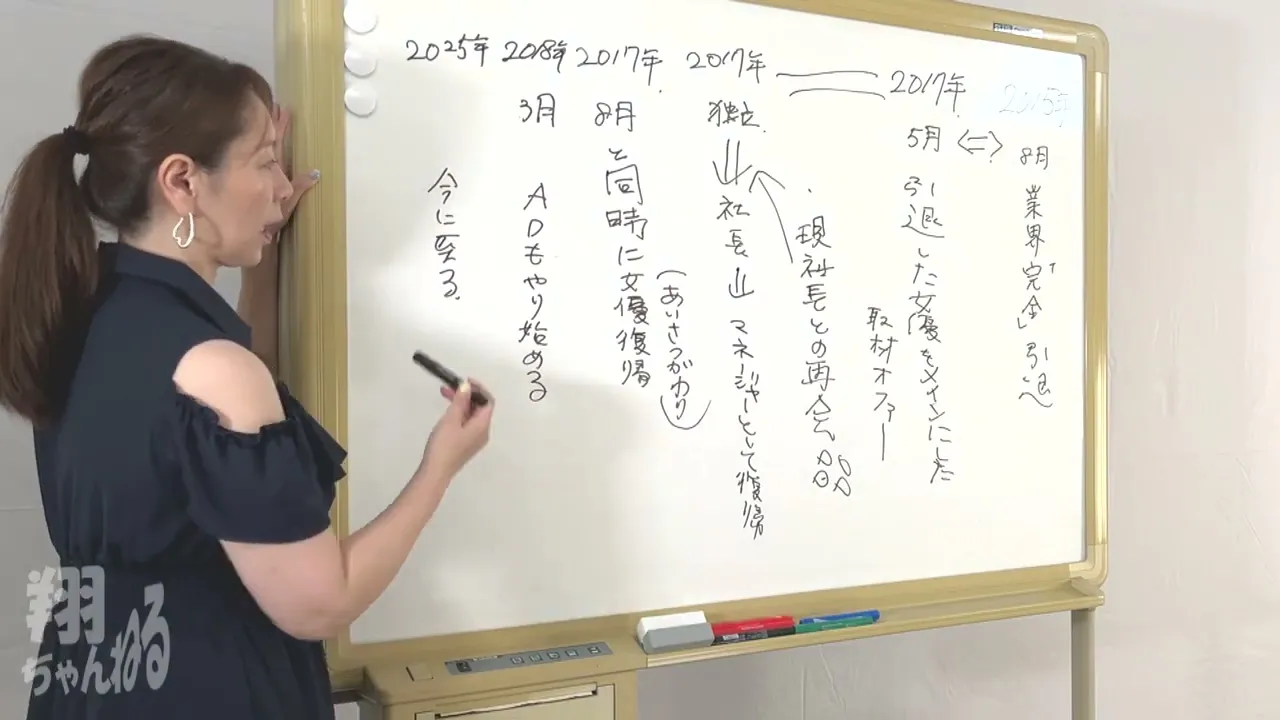 2015年
8月
業界完全引退
2017年
5月
引退した女優をメインにした
取材オファー
現社長との再会
2017年
独立
社長
マネージャーとして復帰
(あいさつがわり)
2017年
8月
と同時に女優復帰
2018年
3月
ADもやり始める
2025年
今に至る
翔
ちゃんねる